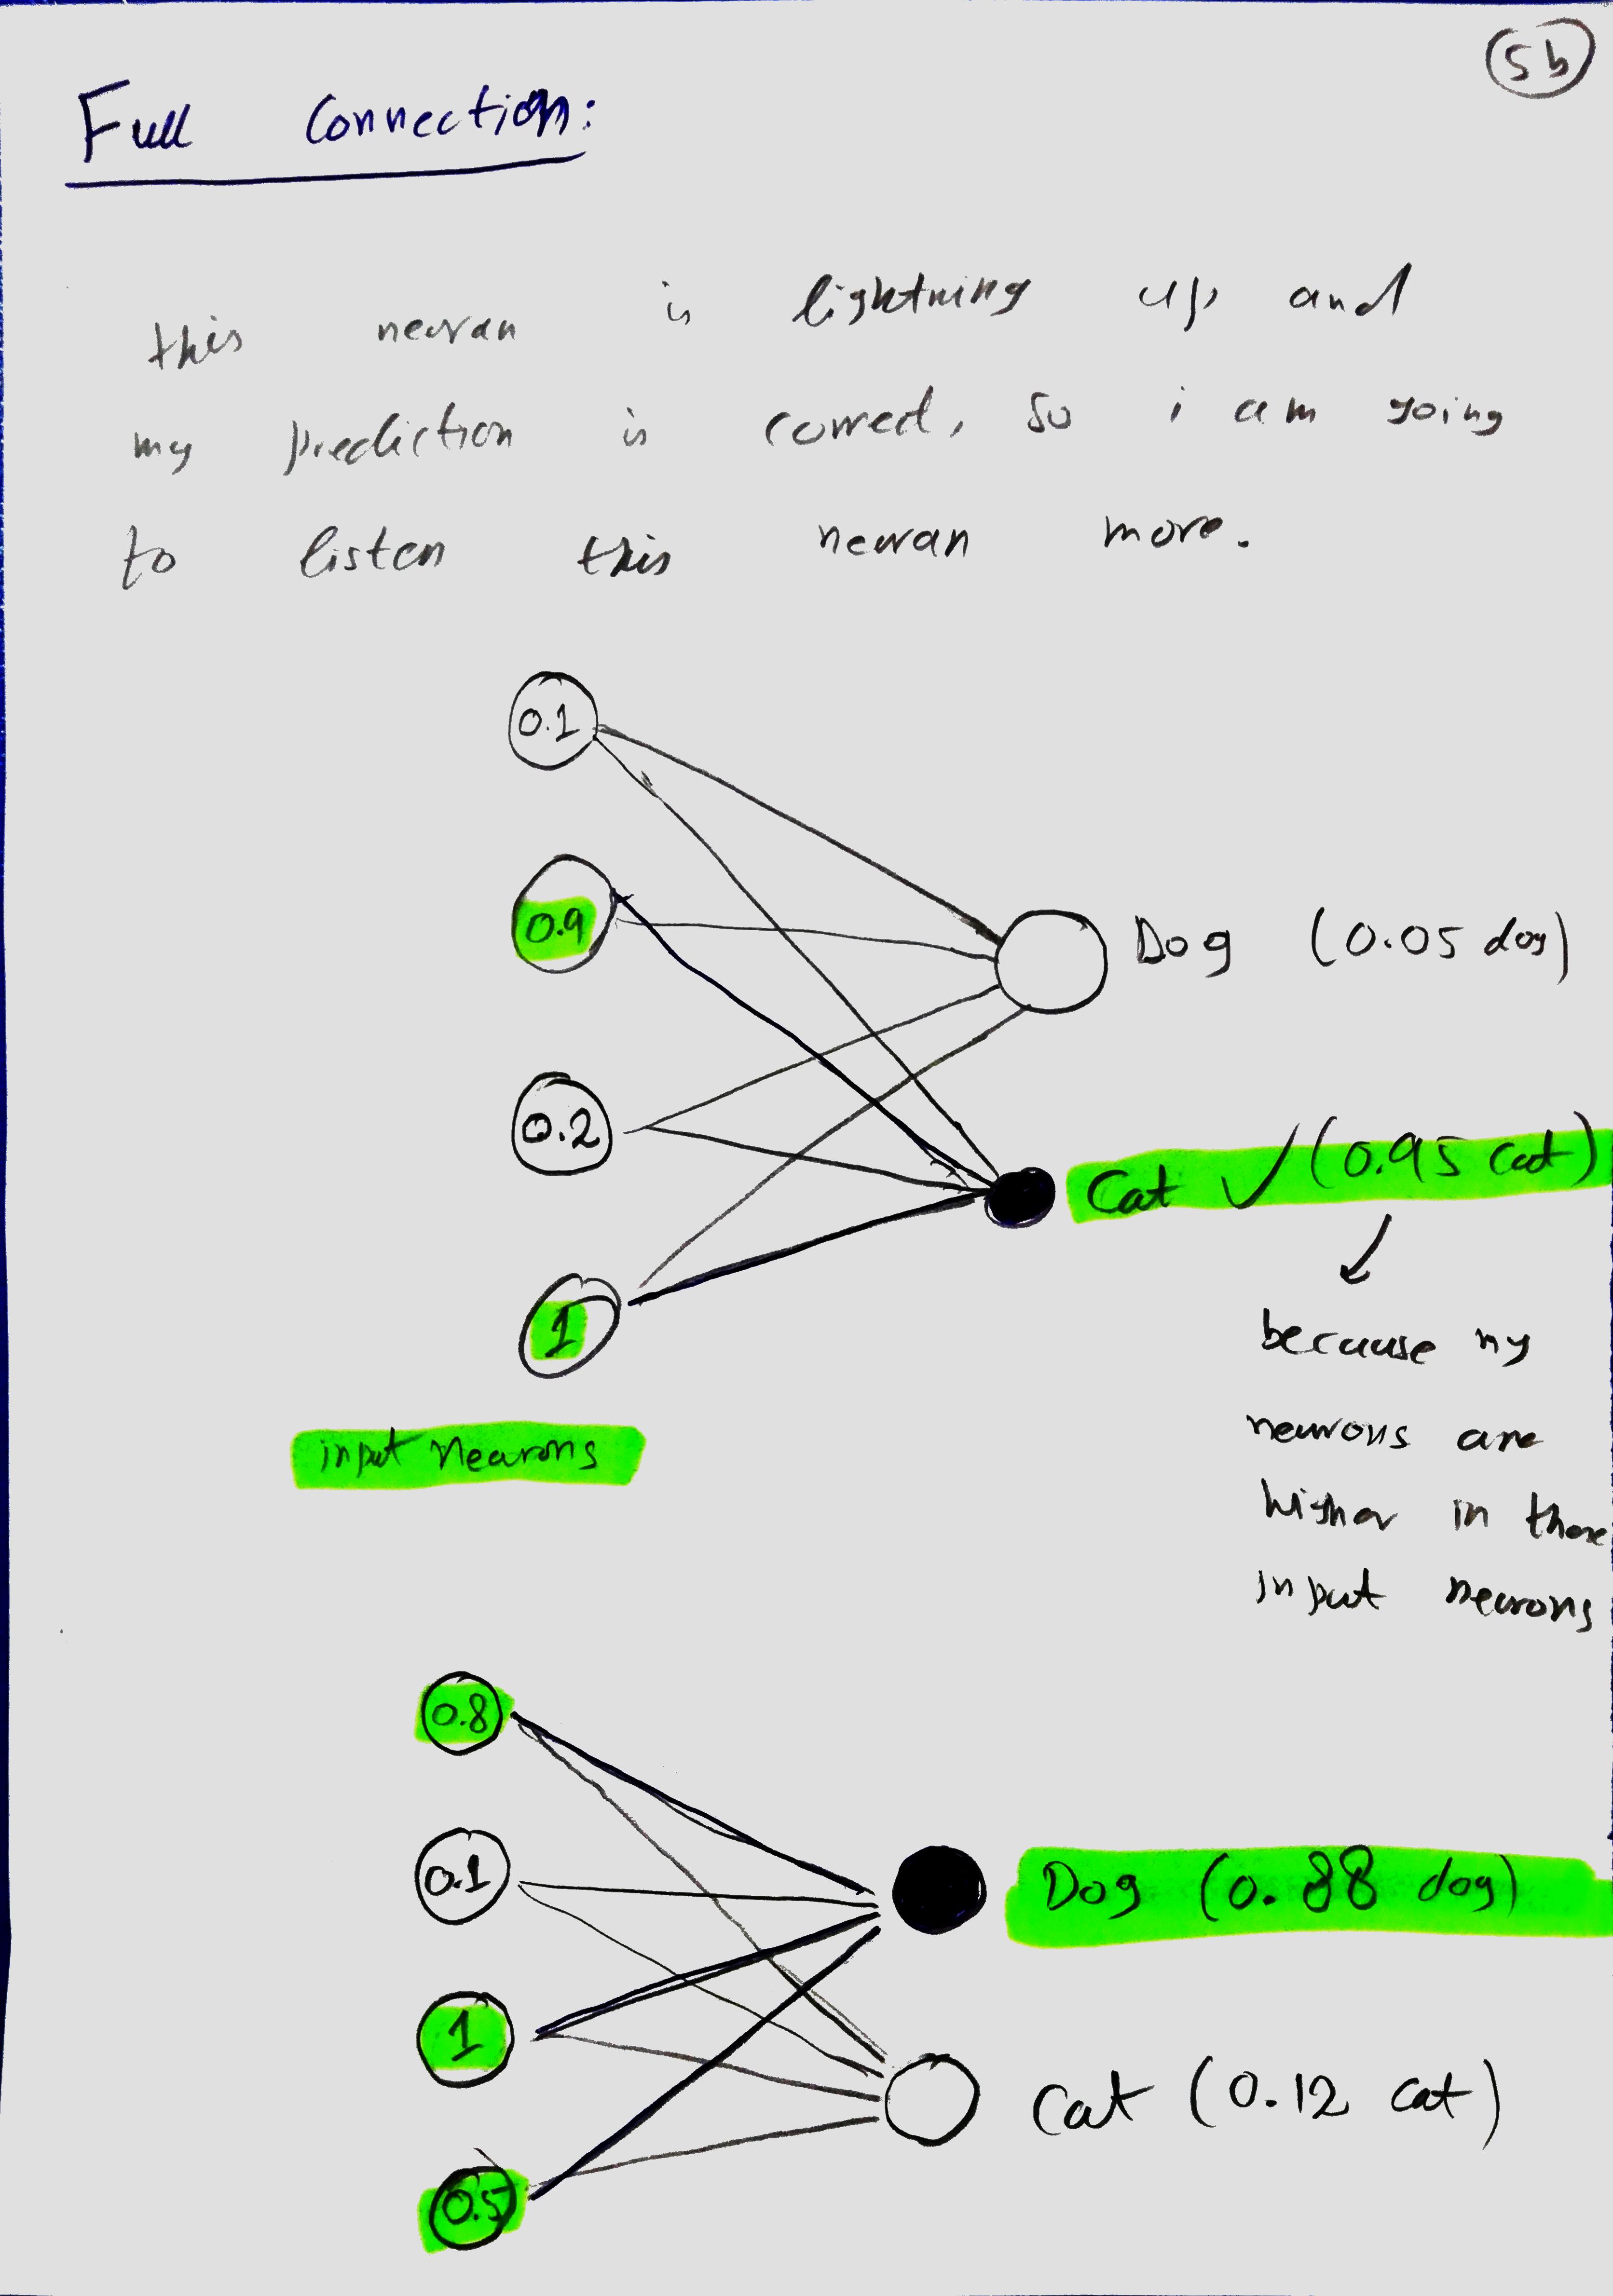 5b
Full Connection:
this neuran is lightning up and
my prediction is correct, so i am going
to listen this neuran more.
0.1
0.9
Dog (0.05 dog)
0.2
Cat ✓ (0.95 cat)
1
because my
neurons are
higher in these
input neurons
input Neurons
0.8
0.1
Dog (0.88 dog)
1
Cat (0.12 cat)
0.5